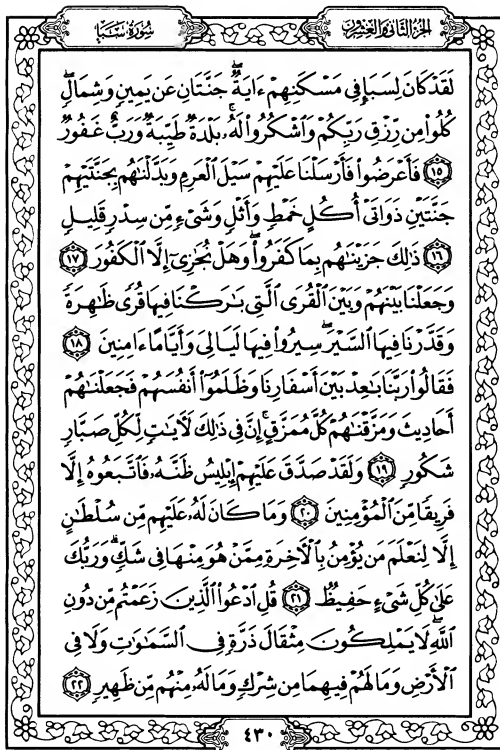 الجزء الثاني والعشرون
سورة سبأ
لَقَدْ كَانَ لِسَبَإٍ فِي مَسْكَنِهِمْ ءَايَةٌ ۖ جَنَّتَانِ عَن يَمِينٍ وَشِمَالٍ ۖ
كُلُوا۟ مِن رِّزْقِ رَبِّكُمْ وَٱشْكُرُوا۟ لَهُۥ ۚ بَلْدَةٌ طَيِّبَةٌ وَرَبٌّ غَفُورٌ
١٥ فَأَعْرَضُوا۟ فَأَرْسَلْنَا عَلَيْهِمْ سَيْلَ ٱلْعَرِمِ وَبَدَّلْنَٰهُم بِجَنَّتَيْهِمْ
جَنَّتَيْنِ ذَوَاتَىْ أُكُلٍ خَمْطٍ وَأَثْلٍ وَشَىْءٍ مِّن سِدْرٍ قَلِيلٍ
١٦ ذَٰلِكَ جَزَيْنَٰهُم بِمَا كَفَرُوا۟ ۖ وَهَلْ نُجَٰزِىٓ إِلَّا ٱلْكَفُورَ ١٧
وَجَعَلْنَا بَيْنَهُمْ وَبَيْنَ ٱلْقُرَى ٱلَّتِى بَٰرَكْنَا فِيهَا قُرًى ظَٰهِرَةً
وَقَدَّرْنَا فِيهَا ٱلسَّيْرَ ۖ سِيرُوا۟ فِيهَا لَيَالِىَ وَأَيَّامًا ءَامِنِينَ ١٨
فَقَالُوا۟ رَبَّنَا بَٰعِدْ بَيْنَ أَسْفَارِنَا وَظَلَمُوٓا۟ أَنفُسَهُمْ فَجَعَلْنَٰهُمْ
أَحَادِيثَ وَمَزَّقْنَٰهُمْ كُلَّ مُمَزَّقٍ ۚ إِنَّ فِى ذَٰلِكَ لَءَايَٰتٍ لِّكُلِّ صَبَّارٍ
شَكُورٍ ١٩ وَلَقَدْ صَدَّقَ عَلَيْهِمْ إِبْلِيسُ ظَنَّهُۥ فَٱتَّبَعُوهُ إِلَّا
فَرِيقًا مِّنَ ٱلْمُؤْمِنِينَ ٢٠ وَمَا كَانَ لَهُۥ عَلَيْهِم مِّن سُلْطَٰنٍ
إِلَّا لِنَعْلَمَ مَن يُؤْمِنُ بِٱلْءَاخِرَةِ مِمَّنْ هُوَ مِنْهَا فِى شَكٍّ ۗ وَرَبُّكَ
عَلَىٰ كُلِّ شَىْءٍ حَفِيظٌ ٢١ قُلِ ٱدْعُوا۟ ٱلَّذِينَ زَعَمْتُم مِّن دُونِ
ٱللَّهِ ۖ لَا يَمْلِكُونَ مِثْقَالَ ذَرَّةٍ فِى ٱلسَّمَٰوَٰتِ وَلَا فِى
ٱلْأَرْضِ وَمَا لَهُمْ فِيهِمَا مِن شِرْكٍ وَمَا لَهُۥ مِنْهُم مِّن ظَهِيرٍ ٢٢
٤٣٠